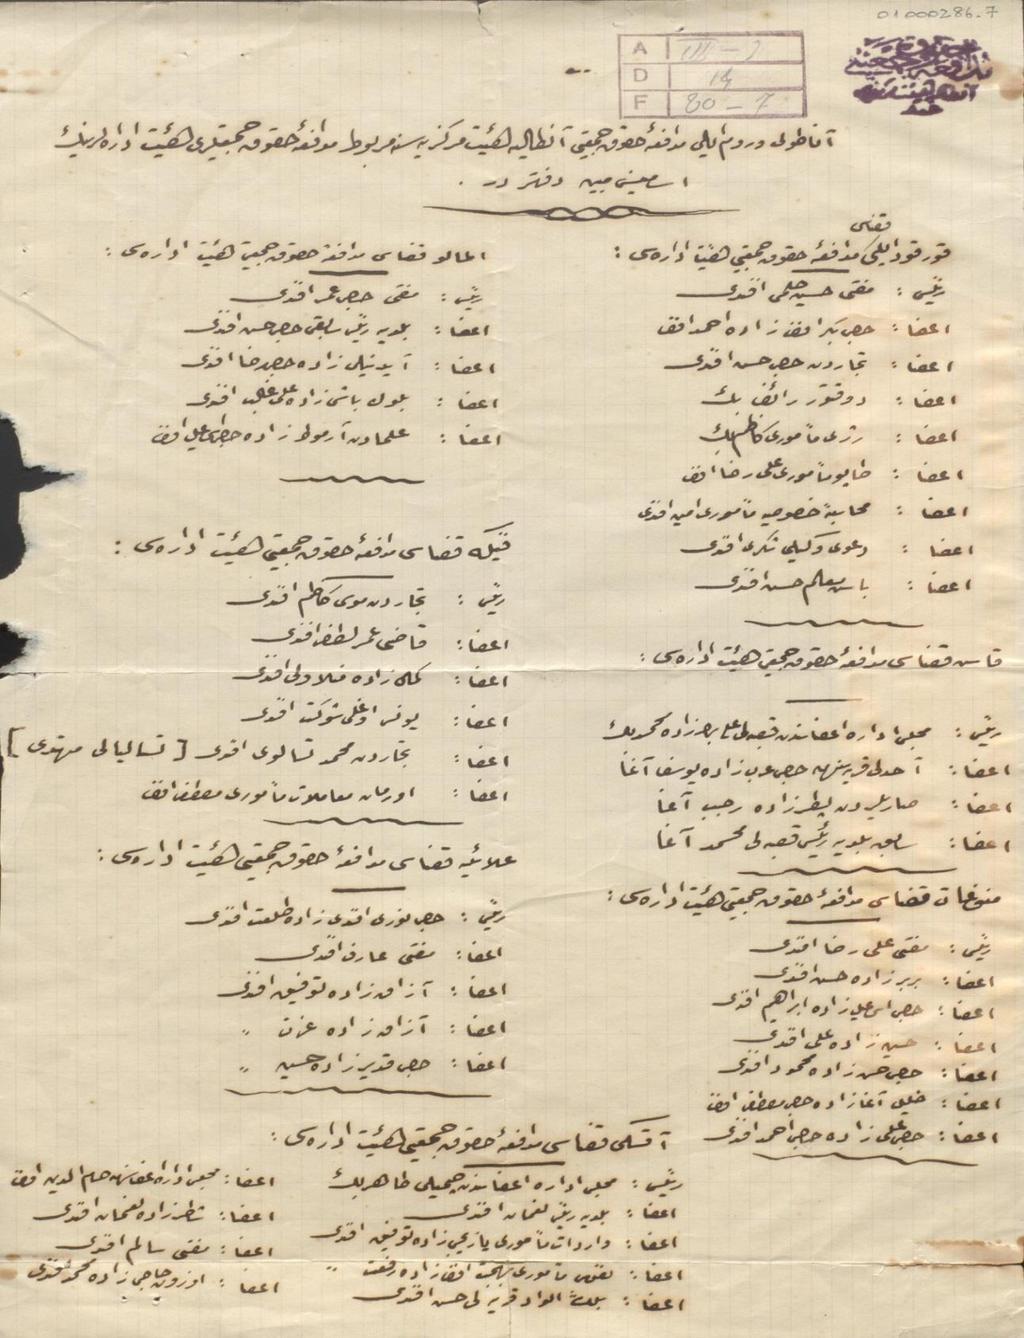 01000286-7
A III-9
D 14
F 80-7
آناطولی وروم ایلی مدافعهٔ حقوق جمعیتی آنطالیه هیئت مرکزیه‌سنه مربوط مدافعهٔ حقوق جمعیتلری هیئت اداره‌لرینك
اسامیسنی مبین دفتر در .
قورقودایلی قضاسی مدافعهٔ حقوق جمعیتی هیئت اداره‌سی :
رئیس : مفتی حسین حلمی افندی
اعضا : زاده احمد افندی
اعضا : تجاردن حاجی حسن افندی
اعضا : دوقتور رائف بك
اعضا : رژی مأموری كاظم بك
اعضا : طاپو مأموری علی رضا افندی
اعضا : محاسبهٔ خصوصیه مأموری امین افندی
اعضا : دعوی وكیلی شكری افندی
اعضا : باش معلم حسن افندی
قاش قضاسی مدافعهٔ حقوق جمعیتی هیئت اداره‌سی :
رئیس : مجلس اداره اعضاسندن قصبه‌لی زاده محمد بك
اعضا : حاجی عرب زاده یوسف آغا
اعضا : زاده رجب آغا
اعضا : سابق بلدیه رئیسی قصبه‌لی محمد آغا
منوغات قضاسی مدافعهٔ حقوق جمعیتی هیئت اداره‌سی :
رئیس : مفتی علی رضا افندی
اعضا : بربر زاده حسن افندی
اعضا : حاجی زاده ابراهیم افندی
اعضا : حسین زاده علی افندی
اعضا : حاجی حسن زاده محمود افندی
اعضا : خلیل آغا زاده حاجی مصطفی افندی
اعضا : حاجی علی زاده حاجی احمد افندی
المالو قضاسی مدافعهٔ حقوق جمعیتی هیئت اداره‌سی :
رئیس : مفتی حاجی عمر افندی
اعضا : بلدیه رئیس سابقی حاجی حسن افندی
اعضا : آیدینلی زاده حاجی رضا افندی
اعضا : بلوك باشی زاده علی غالب افندی
اعضا : علمادن آرموط زاده علی افندی
فنیكه قضاسی مدافعهٔ حقوق جمعیتی هیئت اداره‌سی :
رئیس : تجاردن موسی كاظم افندی
اعضا : قاضی عمر لطفی افندی
اعضا : زاده منلا ولی افندی
اعضا : یونس اوغلی شوكت افندی
اعضا : تجاردن محمد تسالوی افندی [ تسالیالی مهتدی ]
اعضا : اورمان معاملات مأموری مصطفی افندی
علائیه قضاسی مدافعهٔ حقوق جمعیتی هیئت اداره‌سی :
رئیس : حاجی نوری افندی زاده طلعت افندی
اعضا : مفتی عارف افندی
اعضا : آزاق زاده توفیق افندی
اعضا : آزاق زاده عزت "
اعضا : حاجی قدیر زاده حسین "
آقسكی قضاسی مدافعهٔ حقوق جمعیتی هیئت اداره‌سی :
رئیس : مجلس اداره اعضاسندن جمیلی طاهر بك
اعضا : بلدیه رئیسی لقمان افندی
اعضا : واردات مأموری یازیجی زاده توفیق افندی
اعضا : نفوس مأموری بهجت افندی زاده رفعت "
اعضا : قریه‌لی حسن افندی
اعضا : مجلس اداره اعضاسندن حسام الدین افندی
اعضا : زاده لقمان افندی
اعضا : مفتی سالم افندی
اعضا : اوزون حاجی زاده محمد افندی